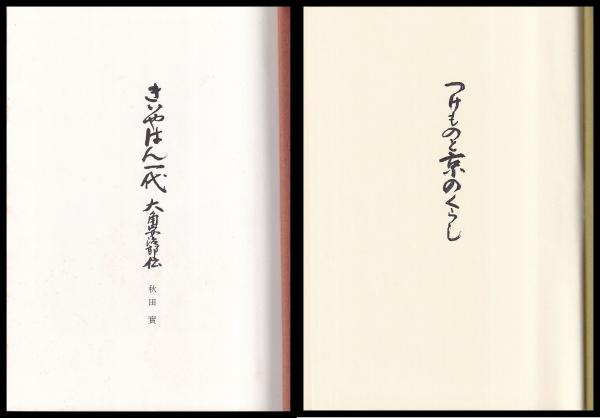 きいやはん一代 大角安治郎伝
秋田 實
つけものと京のくらし